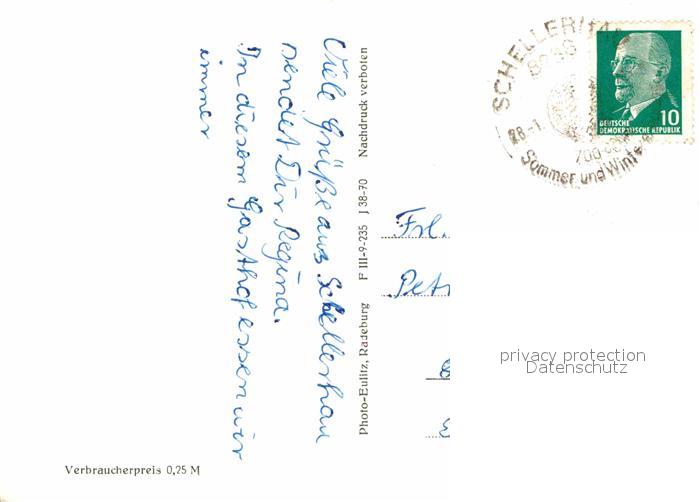 Viele Grüße aus Schellerhau
sendet Dir Regina.
In diesem Gasthof essen wir
immer
Photo-Eulitz, Radeburg F III-9-235 J 38-70 Nachdruck verboten
Verbraucherpreis 0,25 M
SCHELLERHAU
28.-1
700-800
Sommer und Winter
10
DEUTSCHE
DEMOKRATISCHE REPUBLIK
Frl.
Petr
privacy protection
Datenschutz